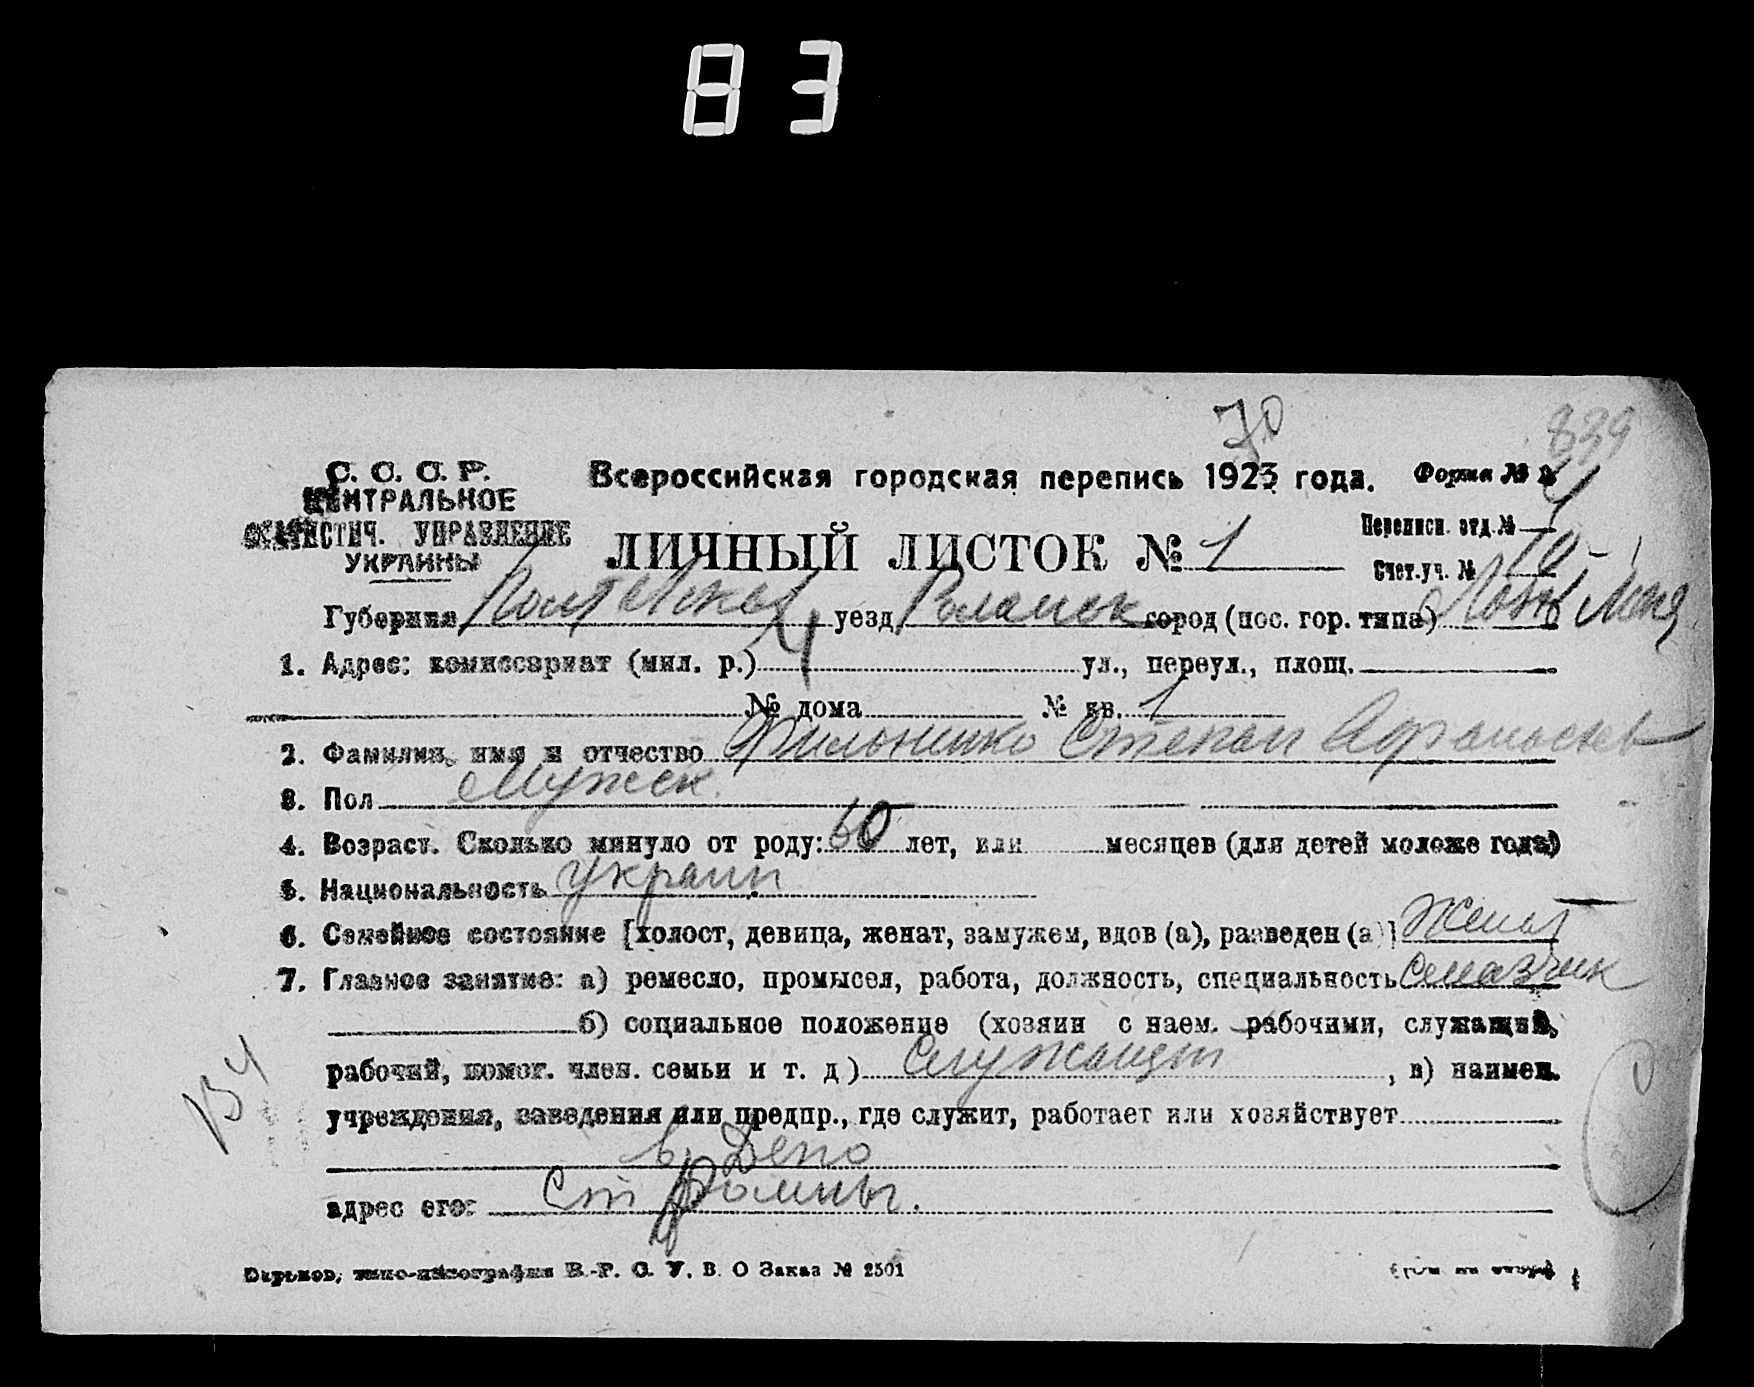 83
70
839
С. С. С. Р.
ЦЕНТРАЛЬНОЕ
СТАТИСТИЧ. УПРАВЛЕНИЕ
УКРАИНЫ
Всероссийская городская перепись 1923 года. Форма №
ЛИЧНЫЙ ЛИСТОК № 1
Переписн. отд. №
Счет.-уч. № 10
Губерния Полтавская уезд Роменск город (пос. гор. типа)
1. Адрес: комиссариат (мил. р.) 4 ул., переул., площ.
№ дома № кв. 1
2. Фамилия, имя и отчество Степан Афанасьев
3. Пол Мужск.
4. Возраст. Сколько минуло от роду: 60 лет, или месяцев (для детей моложе года)
5. Национальность украин
6. Семейное состояние [холост, девица, женат, замужем, вдов (а), разведен (а)] Женат
7. Главное занятие: а) ремесло, промысел, работа, должность, специальность смазчик
б) социальное положение (хозяин с наем. рабочими, служащий,
рабочий, помог. член. семьи и т. д) Служащий, в) наимен.
учреждения, заведения или предпр., где служит, работает или хозяйствует
в Депо
адрес его: Ст Ромны.
134
Харьков, типо-литография В. О Заказ № 2501